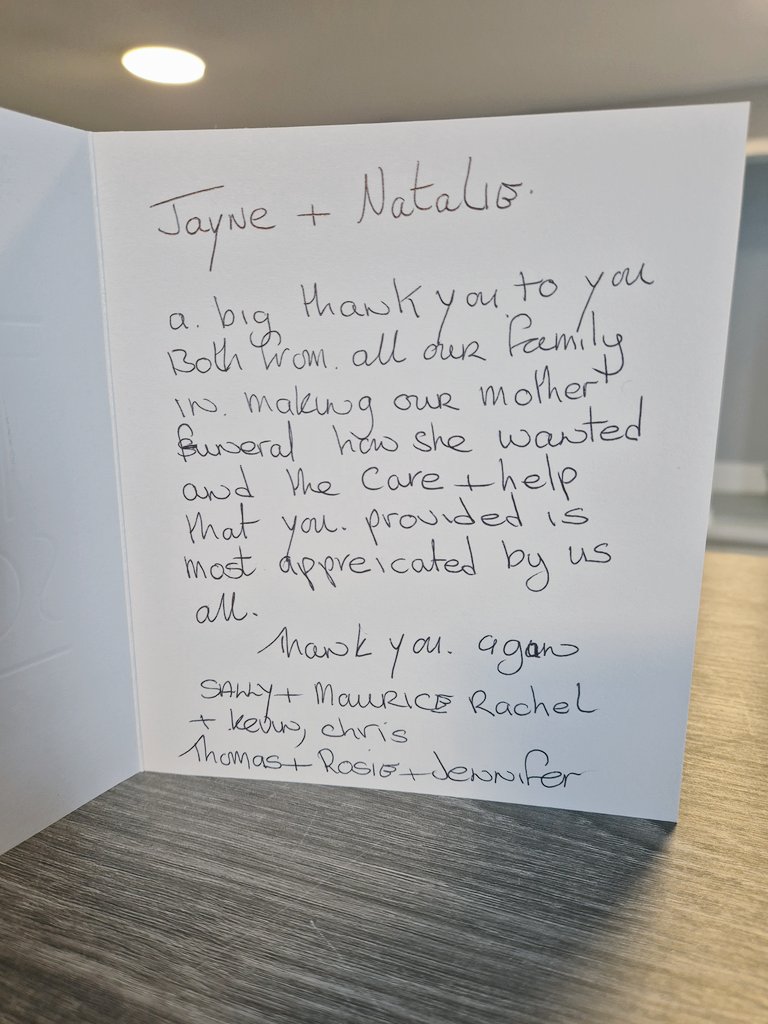 Jayne + Natalie.
a. big thank you to you
Both from. all our family
in. making our mother
funeral how she wanted
and the care + help
that you. provided is
most appreicated by us
all.
Thank you. again
Sally + Maurice Rachel
+ Kevin, chris
Thomas + Rosie + Jennifer